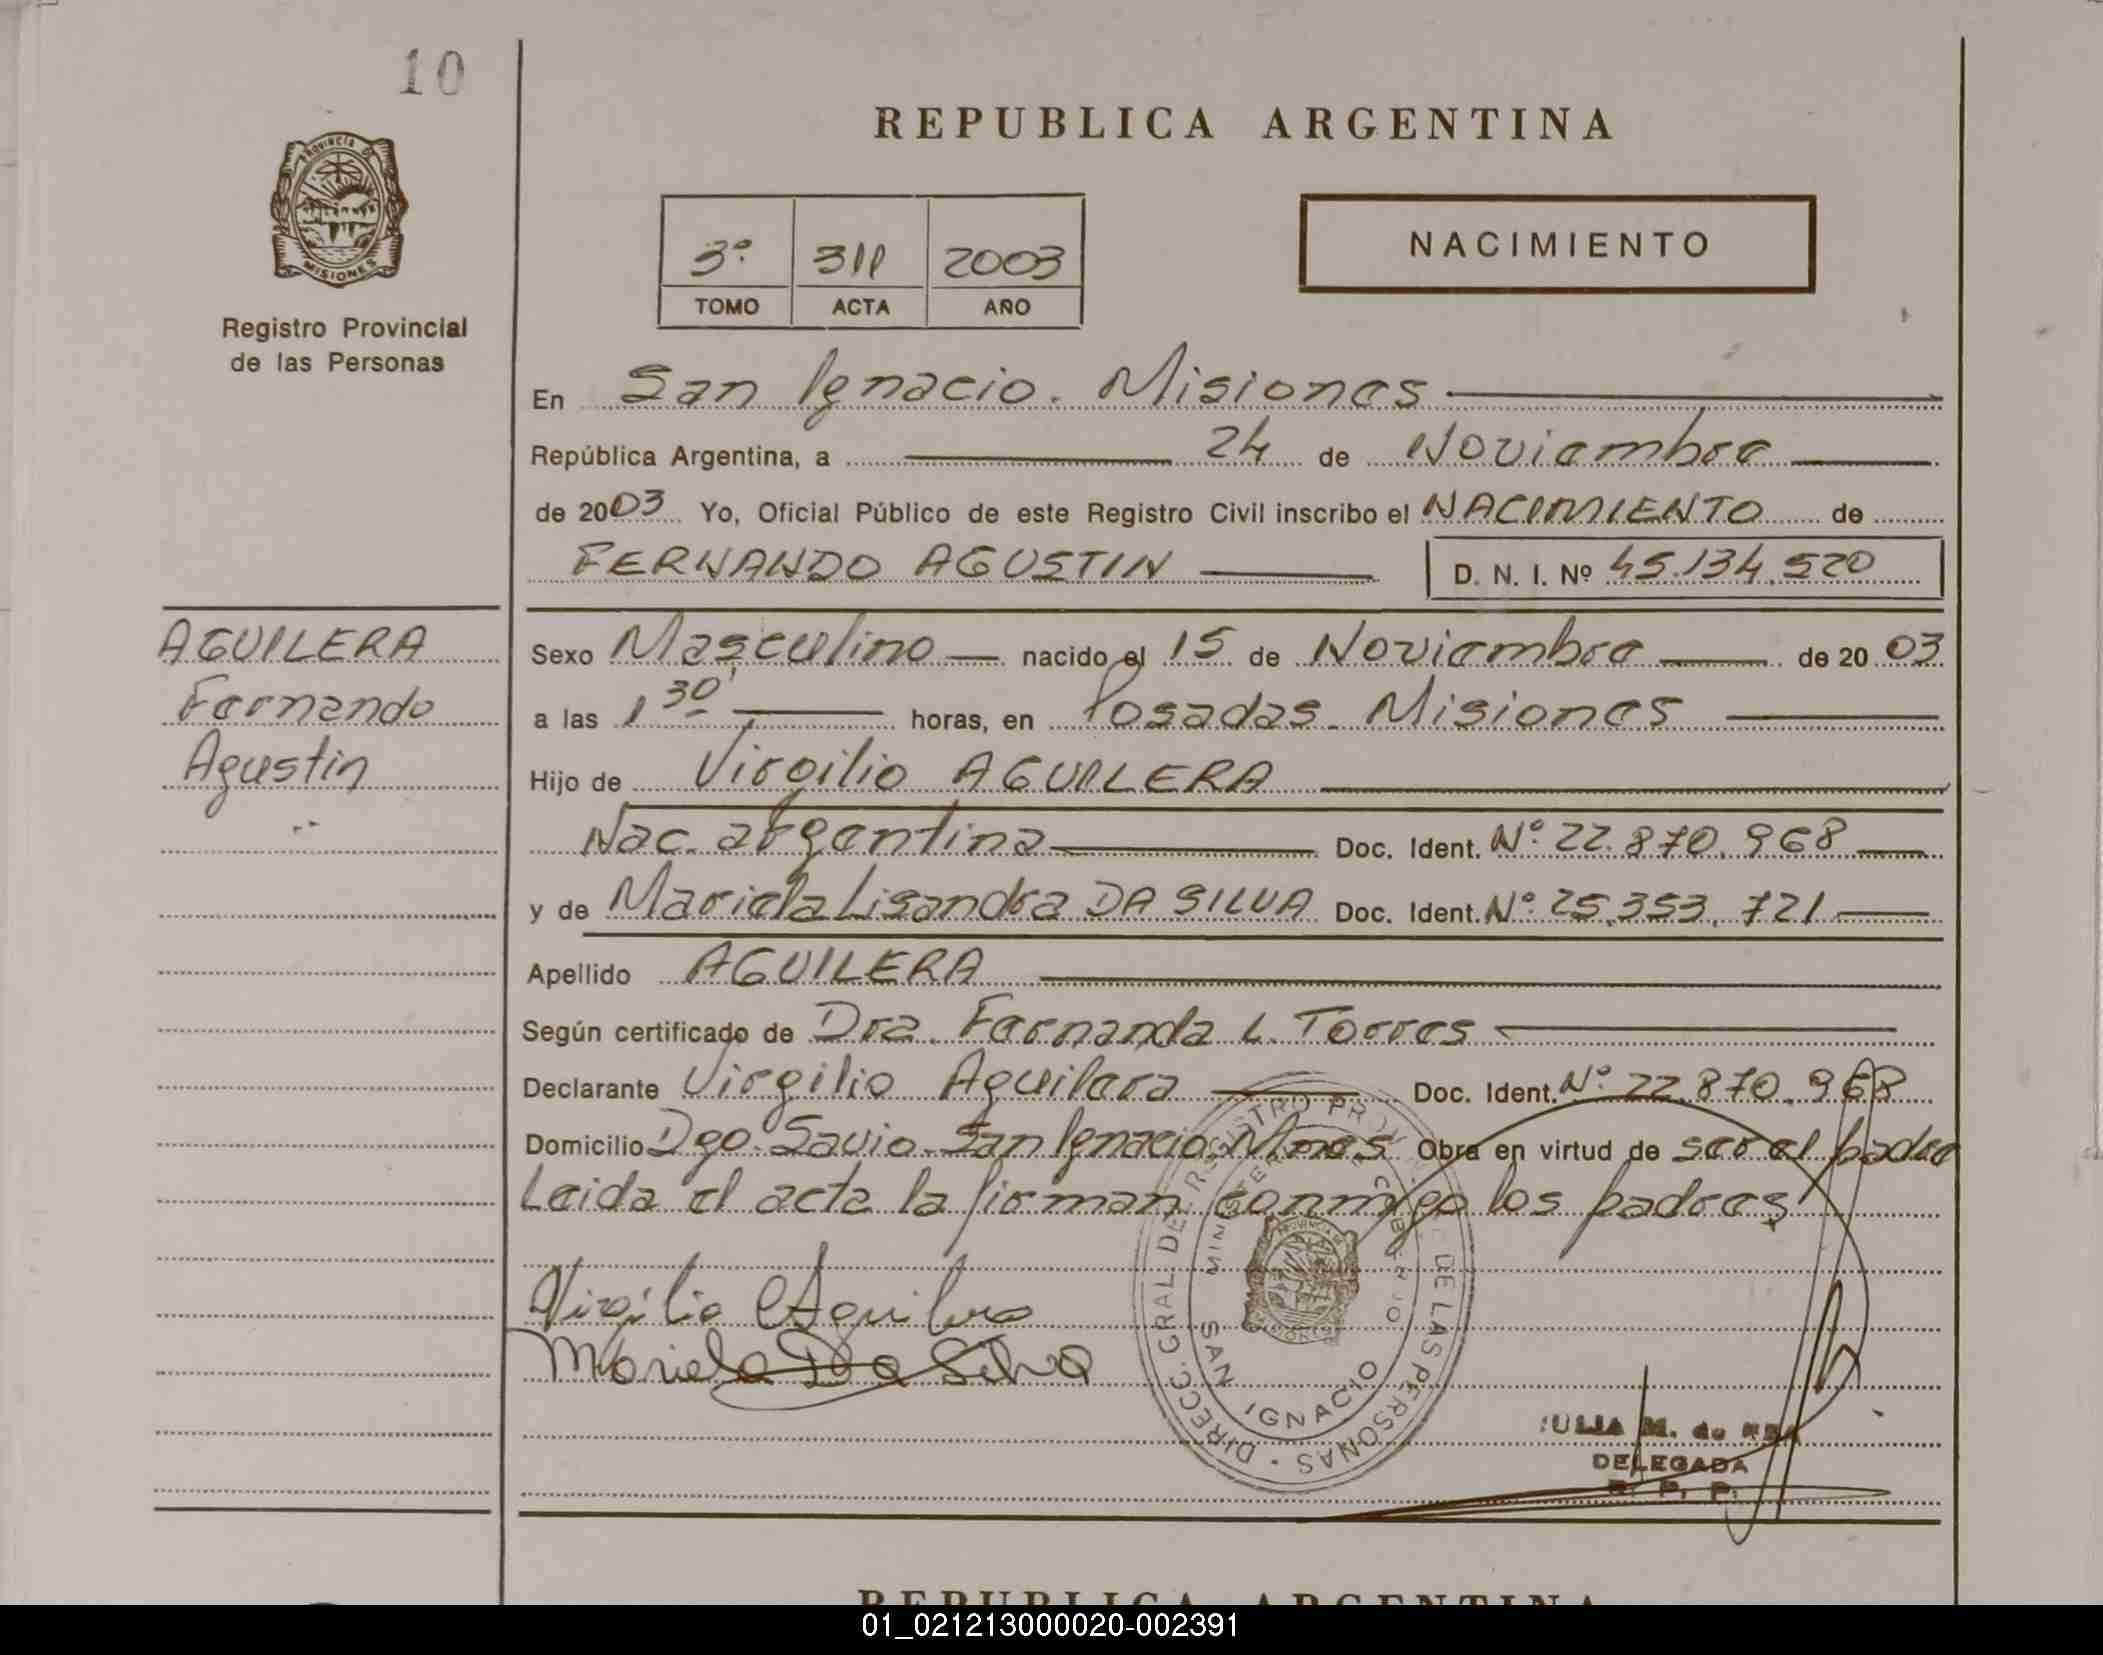 10
REPUBLICA ARGENTINA
PROVINCIA DE
MISIONES
Registro Provincial
de las Personas
3º 311 2003
TOMO ACTA AÑO
NACIMIENTO
En San Ignacio. Misiones
República Argentina, a 24 de Noviembre
de 2003 Yo, Oficial Público de este Registro Civil inscribo el NACIMIENTO de
FERNANDO AGUSTIN D. N. I. Nº 45.134.520
AGUILERA
Fernando
Agustin
Sexo Masculino nacido el 15 de Noviembre de 2003
a las 1 30' horas, en Posadas. Misiones
Hijo de Virgilio AGUILERA
Nac. argentina Doc. Ident. Nº 22.870.968
y de Mariela Lisandra DA SILVA Doc. Ident. Nº 25.353.721
Apellido AGUILERA
Según certificado de Dra. Fernanda L. Torres
Declarante Virgilio Aguilera Doc. Ident. Nº 22.870.968
Domicilio Dgo. Savio. San Ignacio. Mnes Obra en virtud de ser el padre
Leida el acta la firman conmigo los padres
Virgilio Aguilera
Mariela Da Silva
DIRECC. GRAL. DE REGISTRO PROV. DE LAS PERSONAS
SAN IGNACIO
JULIA M. de
DELEGADA
R. P. P.
REPUBLICA ARGENTINA
01_021213000020-002391